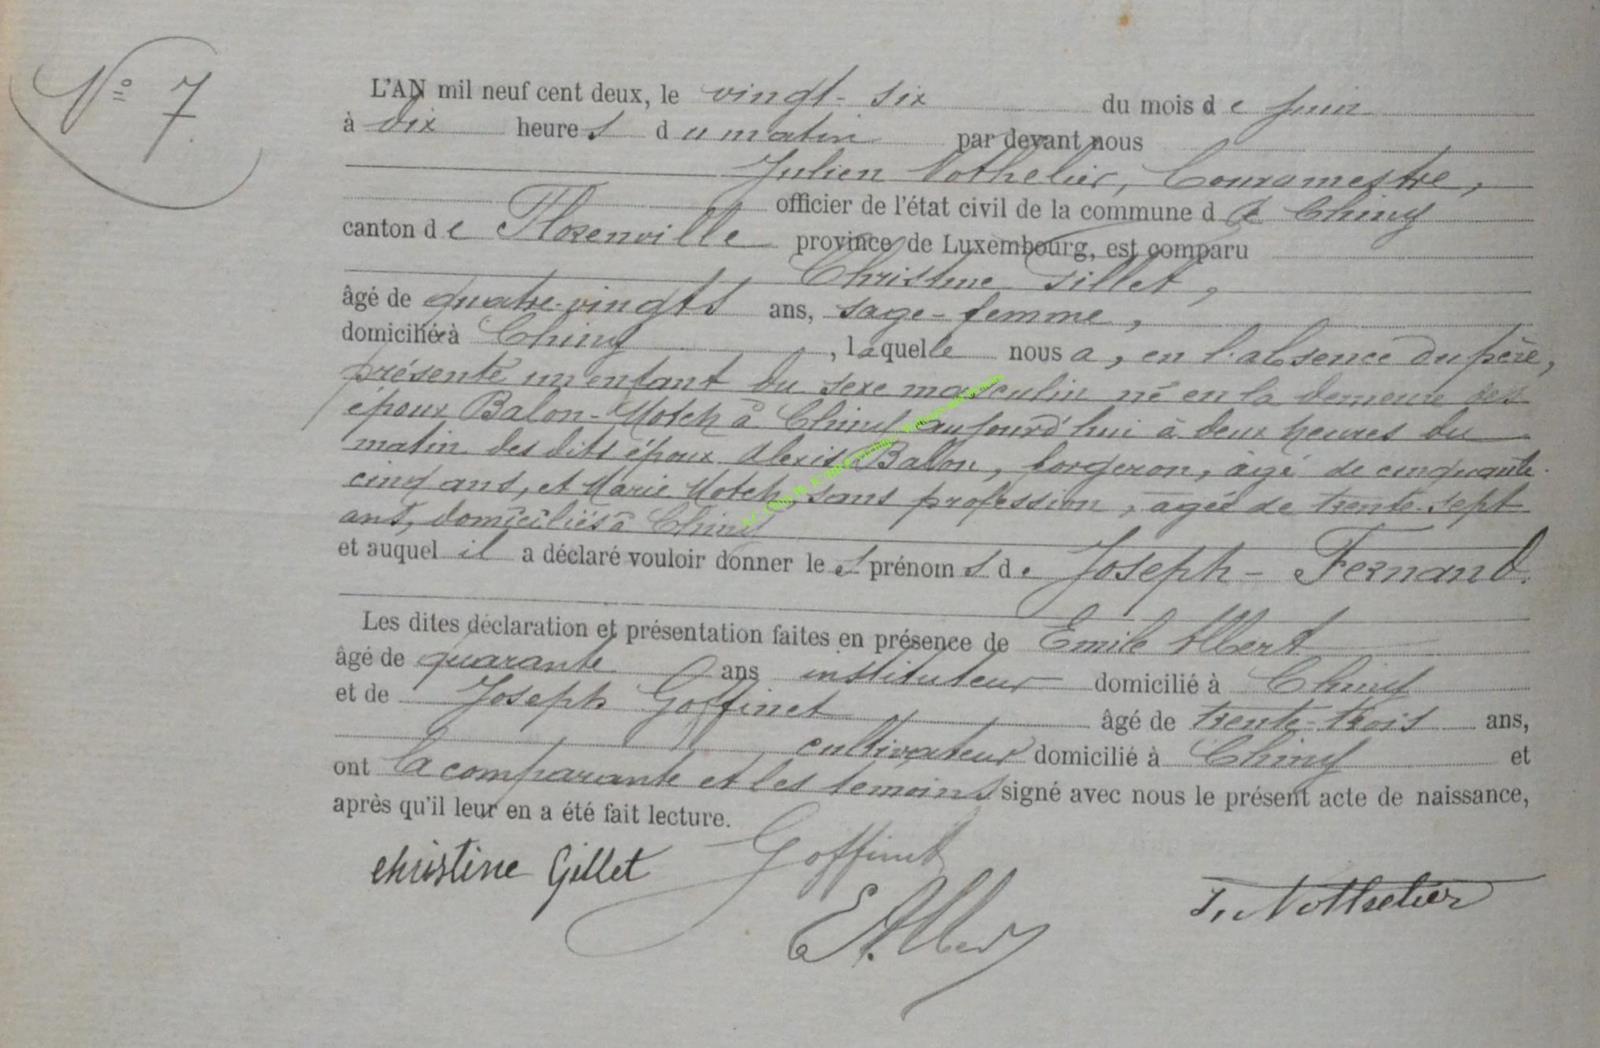 N° 7
L'AN mil neuf cent deux, le vingt-six du mois de Juin
à dix heures du matin par devant nous
Julien Nothelier, Bourgmestre,
officier de l'état civil de la commune de Chiny
canton de Florenville province de Luxembourg, est comparu
Christine Gillet,
âgé de quatre-vingts ans, sage-femme,
domicilié à Chiny, laquelle nous a, en l'absence du père,
présenté un enfant du sexe masculin né en la demeure des
époux Balon-Hotch à Chiny aujourd'hui à deux heures du
matin des dits époux Alexis Balon, forgeron, âgé de cinquante-
cinq ans, et Marie Hotch, sans profession, âgée de trente-sept
ans, domiciliés à Chiny
et auquel il a déclaré vouloir donner les prénoms de Joseph-Fernand.
Les dites déclaration et présentation faites en présence de Emile Albert
âgé de quarante ans instituteur domicilié à Chiny
et de Joseph Goffinet âgé de trente-trois ans,
cultivateur domicilié à Chiny et
ont la comparante et les témoins signé avec nous le présent acte de naissance,
après qu'il leur en a été fait lecture.
Christine Gillet Goffinet
E. Albert J. Nothelier